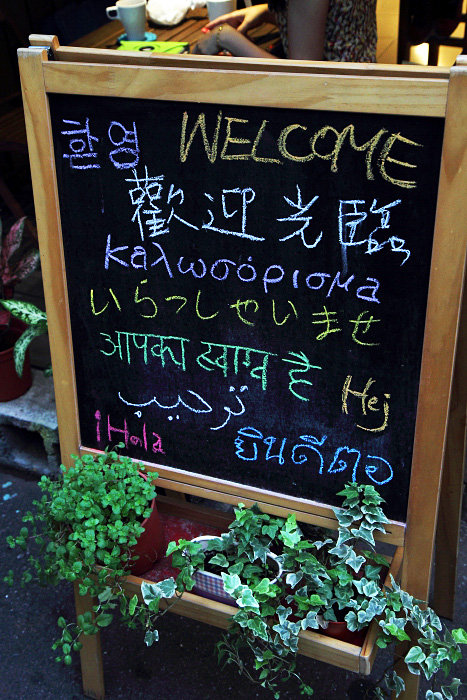 환영 WELCOME
歡迎光臨
καλωσόρισμα
いらっしゃいませ
आपका स्वागत है
ترحيب Hej
¡Hola ยินดีตอ